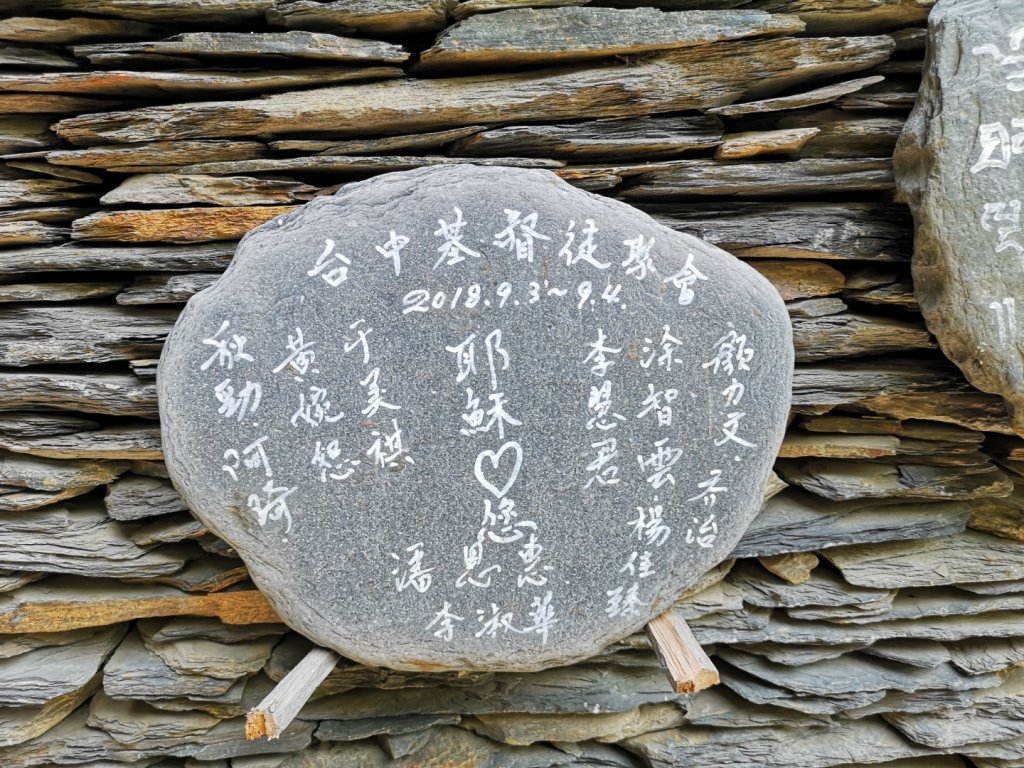 台中基督徒聚會
2018.9.3~9.4.
顏力文、乔治
涂智雲、楊佳臻
李慧君
耶穌♡您
于美祺
黃婉恕
秋勳、阿琦
潘恩惠
李淑華